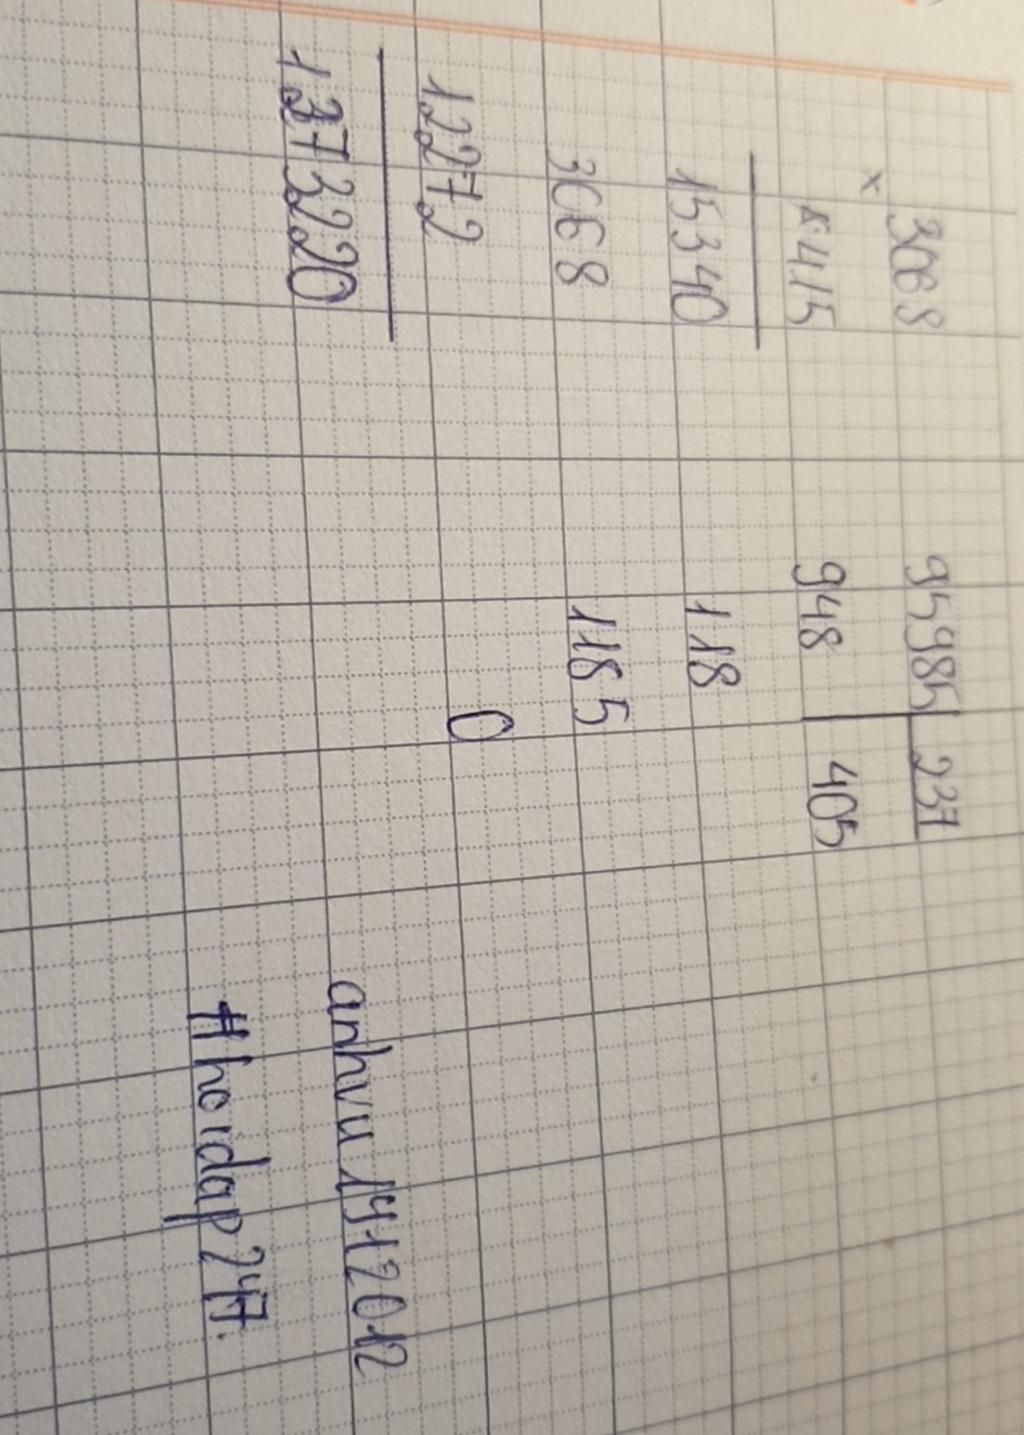 3068
×
415
15340
3068
12272
1373220
95985 237
948 405
118
1185
0
anhvu1412012
#hoidap247.